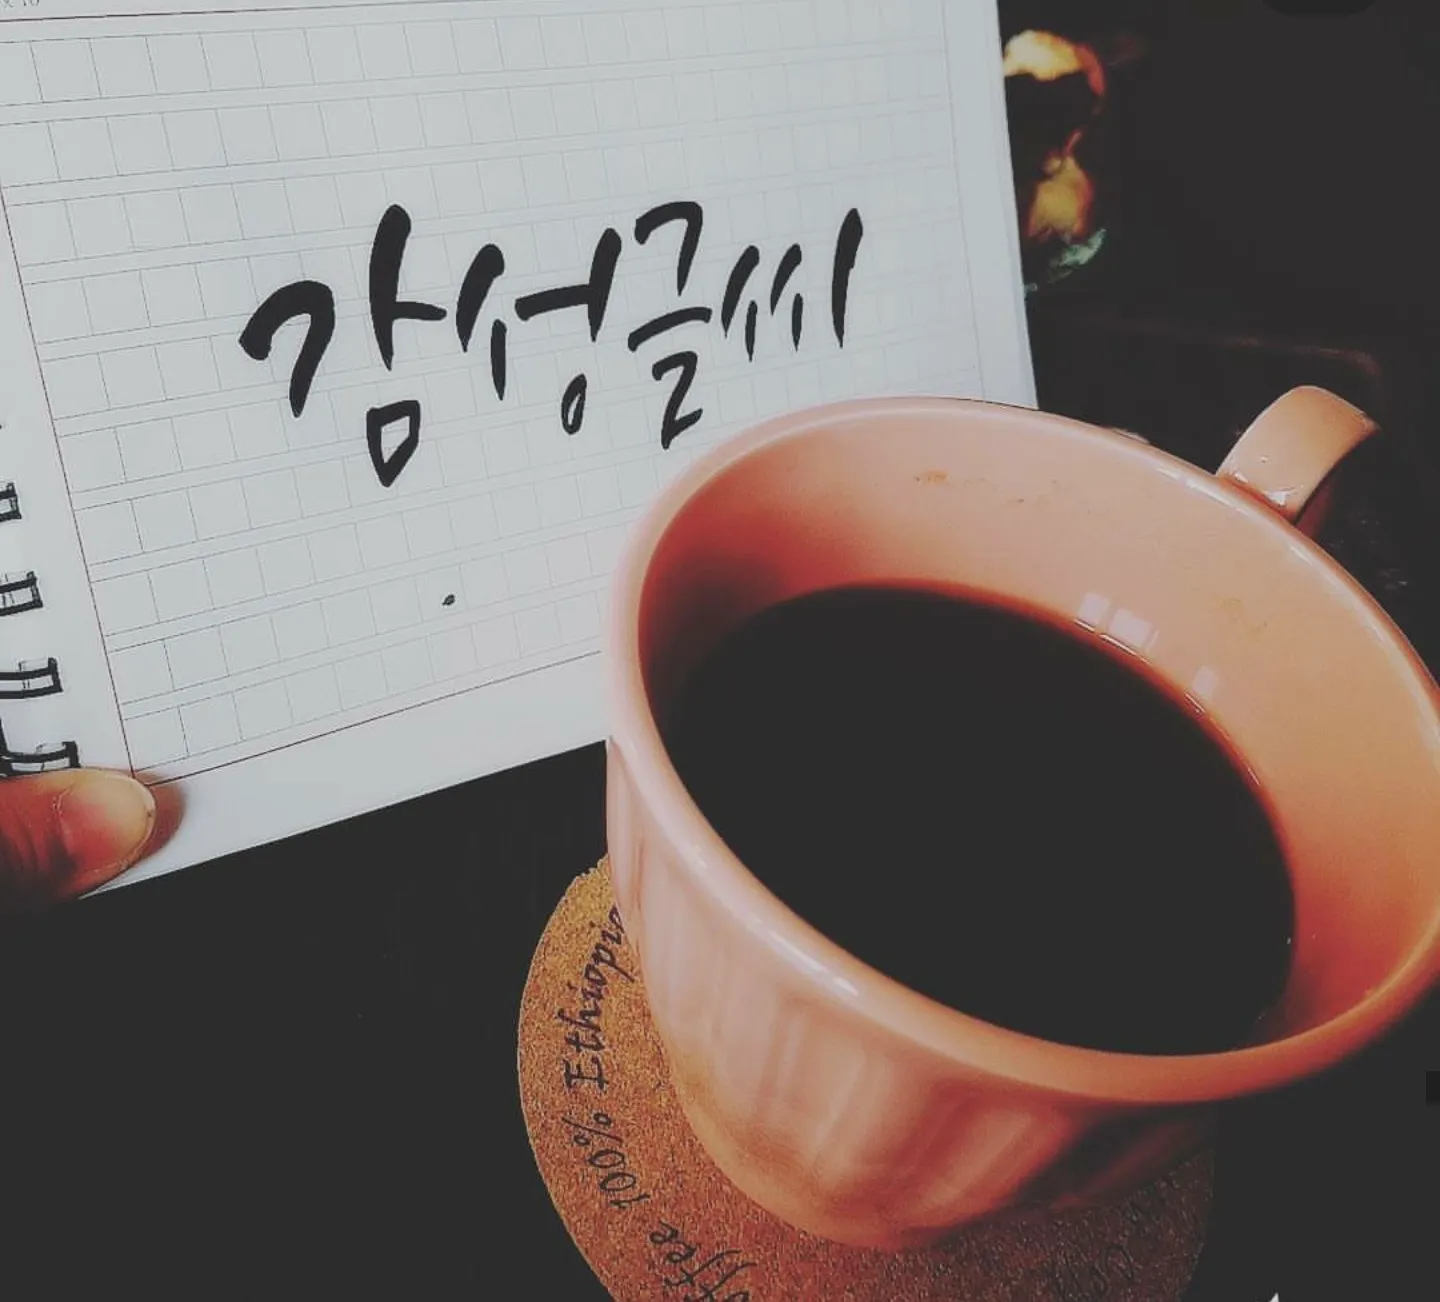 감성글씨
100% Ethiopia